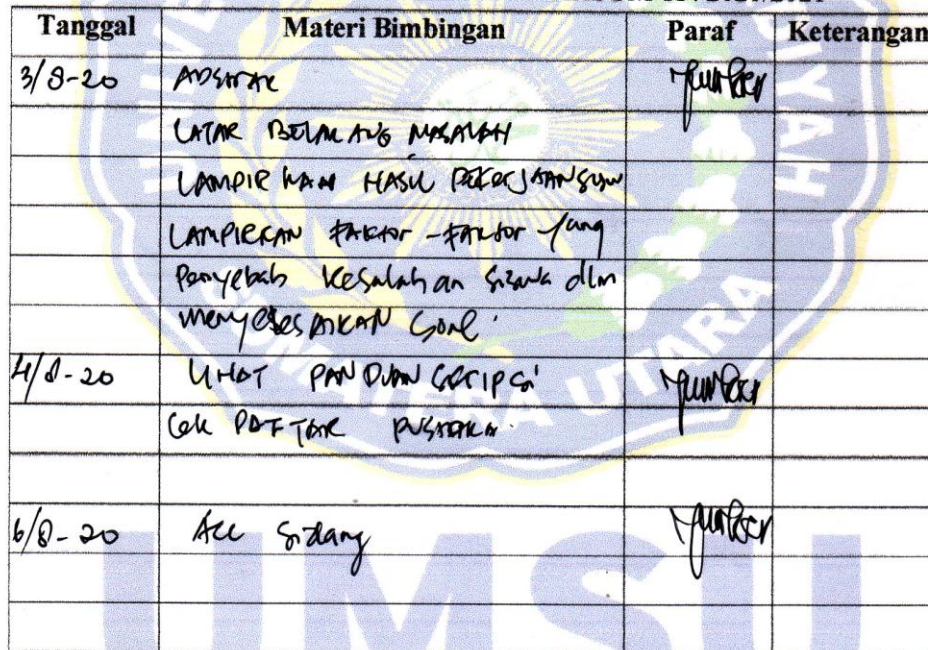 Tanggal Materi Bimbingan Paraf Keterangan
3/8-20 Abstrak
LATAR BELAKANG MASALAH
LAMPIRKAN HASIL PEKERJAAN SISW
LAMPIRKAN FAKTOR-FAKTOR yang
Penyebab kesalahan siswa dlm
menyelesAIKAN Soal.
4/8-20 LIHAT PANDUAN SKRIPSI
Cek DAFTAR PUSTAKA.
6/8-20 Acc Sidang
SUMATERA UTARA
UMSU